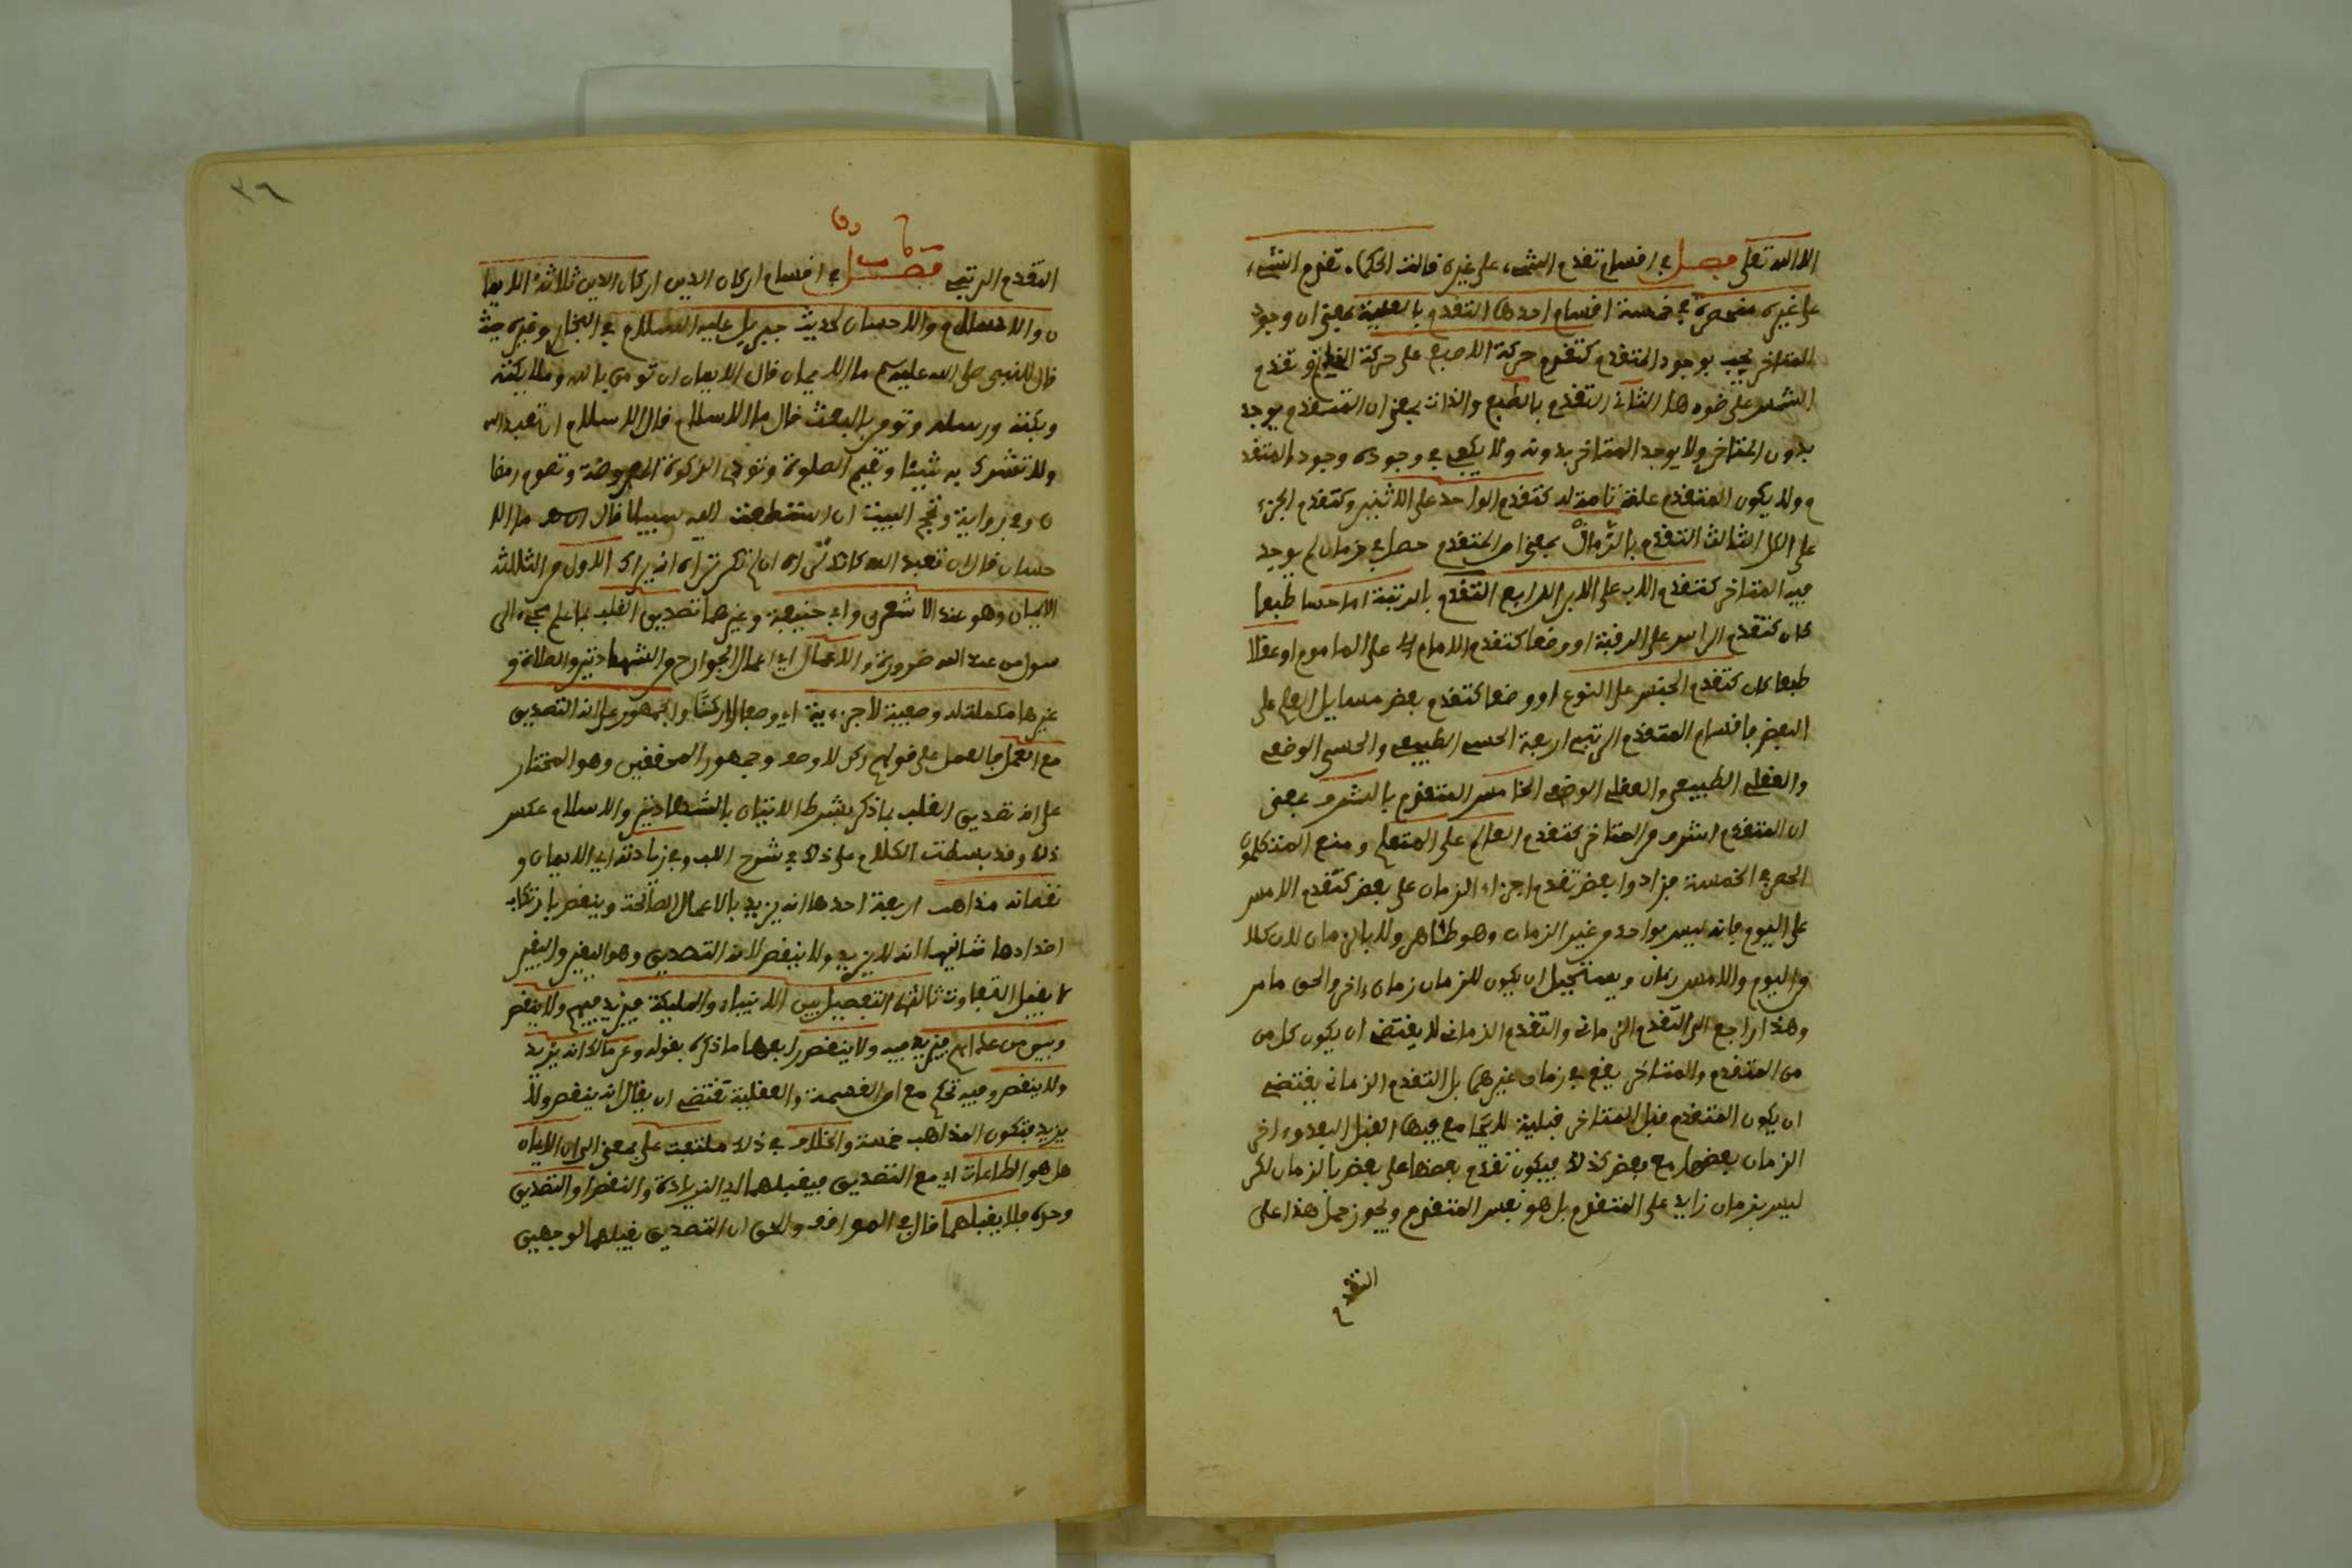 الا الله تعلى فصل في اقسام تقدم الشيء على غيره قالت الحكماء تقدم الشيء
على غيره منحصرة في خمسة اقسام احدها التقدم بالعلية بمعنى ان وجود
المتاخر يجب بوجود المتقدم كتقدم حركة الاصبع على حركة الخاتم وتقدم
الشمس على ضوءها الثاني التقدم بالطبع والذات بمعنى ان المتقدم يوجد
بدون المتاخر ولا يوجد المتاخر بدونه ولا يكفي في وجوده وجود المتقد
م ولا يكون المتقدم علة تامة له كتقدم الواحد على الاثنين وكتقدم الجزء
على الكل الثالث التقدم بالزمان بمعنى ان المتقدم حصل في زمان لم يوجد
فيه المتاخر كتقدم الاب على الابن الرابع التقدم بالرتبة اما حسا طبعا
كان كتقدم الراس على الرقبة او وضعا كتقدم الامام على الماموم او عقلا
طبعا كان كتقدم الجنس على النوع او وضعا كتقدم بعض مسايل العلم على
البعض فاقسام المتقدم الرتبي اربعة الحسي الطبيعي والحسي الوضعي
والعقلي الطبيعي والعقلي الوضعي الخامس المتقدم بالشرف بمعنى
ان المتقدم اشرف من المتاخر كتقدم العالم على المتعلم ومنع المتكلمون
الحصر في الخمسة فزادوا بعض تقدم اجزاء الزمان على بعض كتقدم الامس
على اليوم فانه ليس بواحد من غير الزمان وهو ظاهر ولا بالزمان لان كلا
من اليوم والامس زمان ويستحيل ان يكون للزمان زمان ءاخر والحق ما مر
وهذا راجع الى التقدم الزماني والتقدم الزماني لا يقتضي ان يكون كل من
من المتقدم والمتاخر يقع في زمان غيرهما بل التقدم الزماني يقتضي
ان يكون المتقدم قبل المتاخر قبلية لا يجامع فيها القبل البعد واجزا
الزمان بعضها مع بعض كذلك فيكون تقدم بعضها على بعض بالزمان لكن
ليس بزمان زايد على المتقدم بل هو نفس المتقدم ويجوز حمل هذا على
التقدم
٣٦
التقدم الرتبي فصل في اقسام اركان الدين اركان الدين ثلاثة الايما
ن والاسلام والاحسان لحديث جبريل عليه السلام في البخاري وغيره حيث
قال للنبي صلى الله عليه وسلم ما الايمان قال الايمان ان تومن بالله وملايكته
وبكتبه ورسله وتومن بالبعث قال ما الاسلام قال الاسلام ان تعبد الله
ولا تشرك به شيئا وتقيم الصلوة وتودي الزكوة المفروضة وتصوم رمضا
ن وفي رواية وتحج البيت ان استطعت اليه سبيلا قال ما الا
حسان قال ان تعبد الله كانك تراه ان لم تكن تراه انه يراك الاول من الثلاثة
الايمان وهو عند الاشعري وابي حنيفة وغيرهما تصديق القلب بما علم مجيء الر
سول من عند الله ضرورة والاعمال اي اعمال الجوارح من الشهادتين والصلاة و
غيرها مكملة له وصفية لا جزءية اي وصفا لا ركنا والجمهور على انه التصديق
مع العمل فالعمل على قولهم ركن لا وصف وجمهور المحققين وهو المختار
على انه تصديق القلب بما ذكر بشرط الاتيان بالشهادتين والاسلام عكس
ذلك وقد بسطت الكلام على ذلك في شرح اللب وفي زيادته اي الايمان و
نقصانه مذاهب اربعة احدها انه يزيد بالاعمال الصالحة وينقص بارتكاب
اضدادها ثانيها انه لا يزيد ولا ينقص لانه التصديق وهو اليقين واليقين
لا يقبل التفاوت ثالثها التفصيل بين الانبياء والمليكة فيزيد فيهم ولا ينقص
وبين من عداهم فيزيد فيه ولا ينقص رابعها ما ذكره بقوله وعن مالك انه يزيد
ولا ينقص وفيه تحكم مع ان القسمة العقلية تقتضي ان يقال انه ينقص ولا
يزيد فتكون المذاهب خمسة والخلاف في ذلك ملتفت على معنى الى ان الايمان
هل هو الطاعات اي مع التصديق فيقبلهما اي الزيادة والنقص او التصديق
وحده فلا يقبلهما قال في المواقف والحق ان التصديق يقبلهما لوجهين